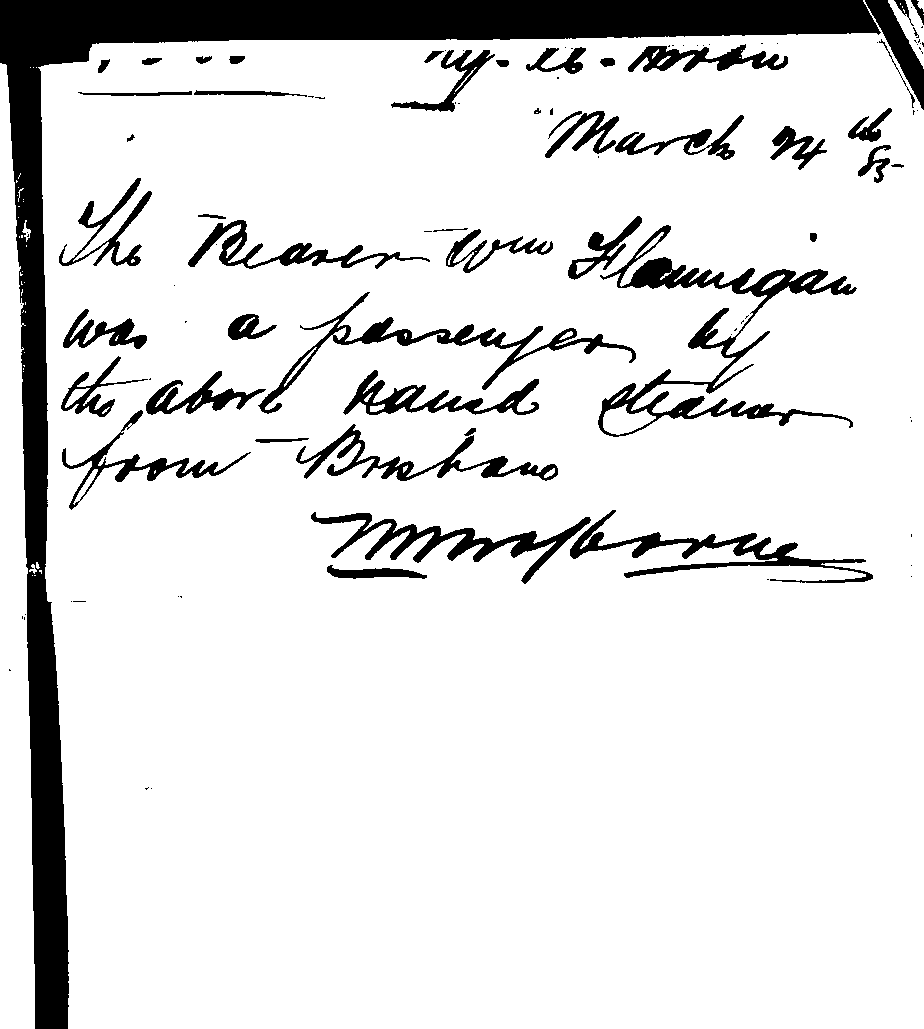 March 24th 85
The Bearer Wm Flannigan
was a passenger by
the above named steamer
from Brisbane